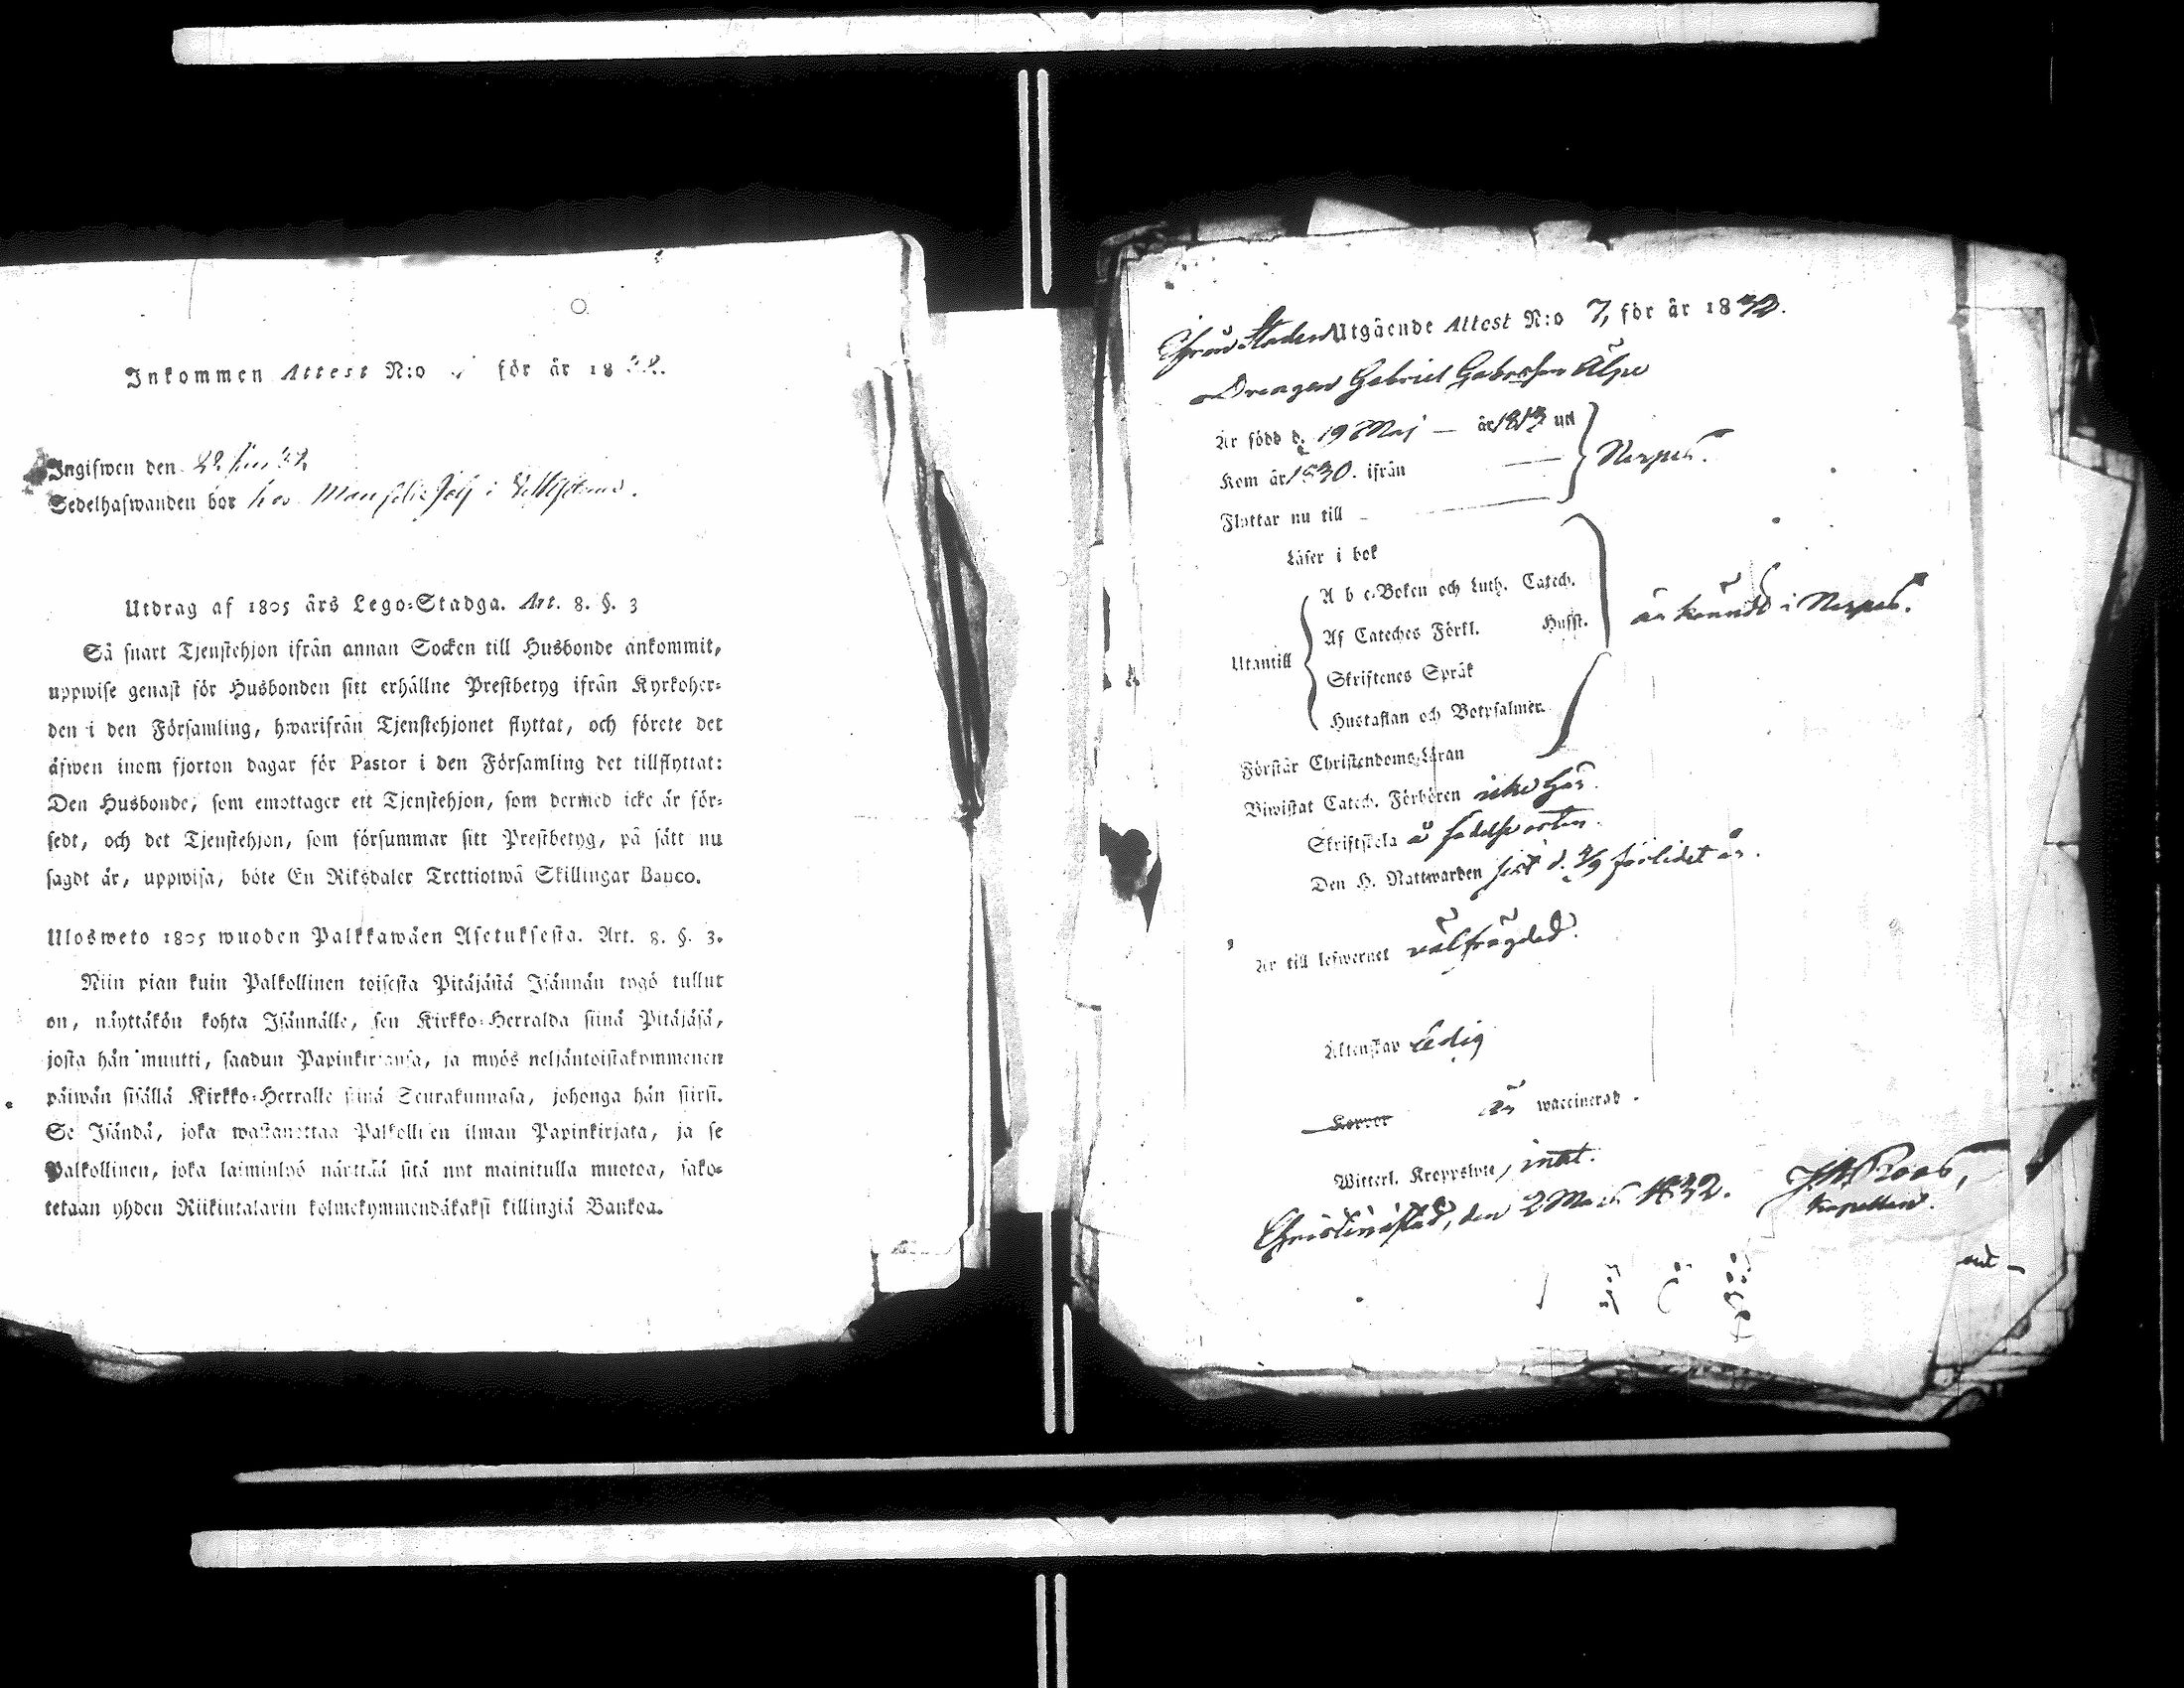 Inkommen Attest N:o för år 18 32.
Ingifwen den 22
Sedelhafwanden bor hos i
Utdrag af 1805 års Lego-Stadga. Art. 8. §. 3
Så snart Tjenstehjon ifrån annan Socken till Husbonde ankommit,
uppwise genast för Husbonden sitt erhållne Prestbetyg ifrån Kyrkoher-
den i den Församling, hwarifrån Tjenstehjonet flyttat, och förete det
äfwen inom fjorton dagar för Pastor i den Församling det tillflyttat:
Den Husbonde, som emottager ett Tjenstehjon, som dermed icke är för-
sedt, och det Tjenstehjon, som försummar sitt Prestbetyg, på sätt nu
sagdt är, uppwisa, böte En Riksdaler Trettiotwå Skillingar Banco.
Ulosweto 1805 wuoden Palkkawäen Asetuksesta. Art. 8. §. 3.
Niin pian kuin Palkollinen toisesta Pitäjästä Isännän tygö tullut
on, näyttäkön kohta Isännälle, sen Kirkko-Herralda siinä Pitäjäsä,
josta hän muutti, saadun Papinkirjansa, ja myös neljäntoistakymmenen
päiwän sisällä Kirkko-Herralle siinä Seurakunnasa, johonga hän siirsi.
Se Isändä, joka wastanottaa Palkollisen ilman Papinkirjata, ja se
Palkollinen, joka laiminlyö näyttää sitä nyt mainitulla muotoa, sako-
tetaan yhden Riikintalarin kolmekymmendäkaksi killingiä Bankoa.
ifrån Staden Utgående Attest N:o 7, för år 1832.
Drengen Gabriel Älpe
Är född d. 19 Maj — år 1813 uti
Kom år 1830. ifrån — Nerpes.
Flyttar nu till —
Läser i bok
A b c-Boken och Luth. Catech.
Af Cateches Förkl. Husst. är kändt i Nerpes.
Utantill
Skriftenes Språk
Hustaflan och Botpsalmer.
Förstår Christendoms Läran
Biwistat Catech. Förhören icke här.
Skriftskola å födelseorten.
Den H. Nattwarden sist d. 4/9 förlidet år.
Är till lefwernet välfrägdad.
Äktenskap ledig
Korrer är waccinerad.
Witterl. Kroppslyte, intet.
Christinestad, den 2 Mars 1832. Roos,
Kapellan.